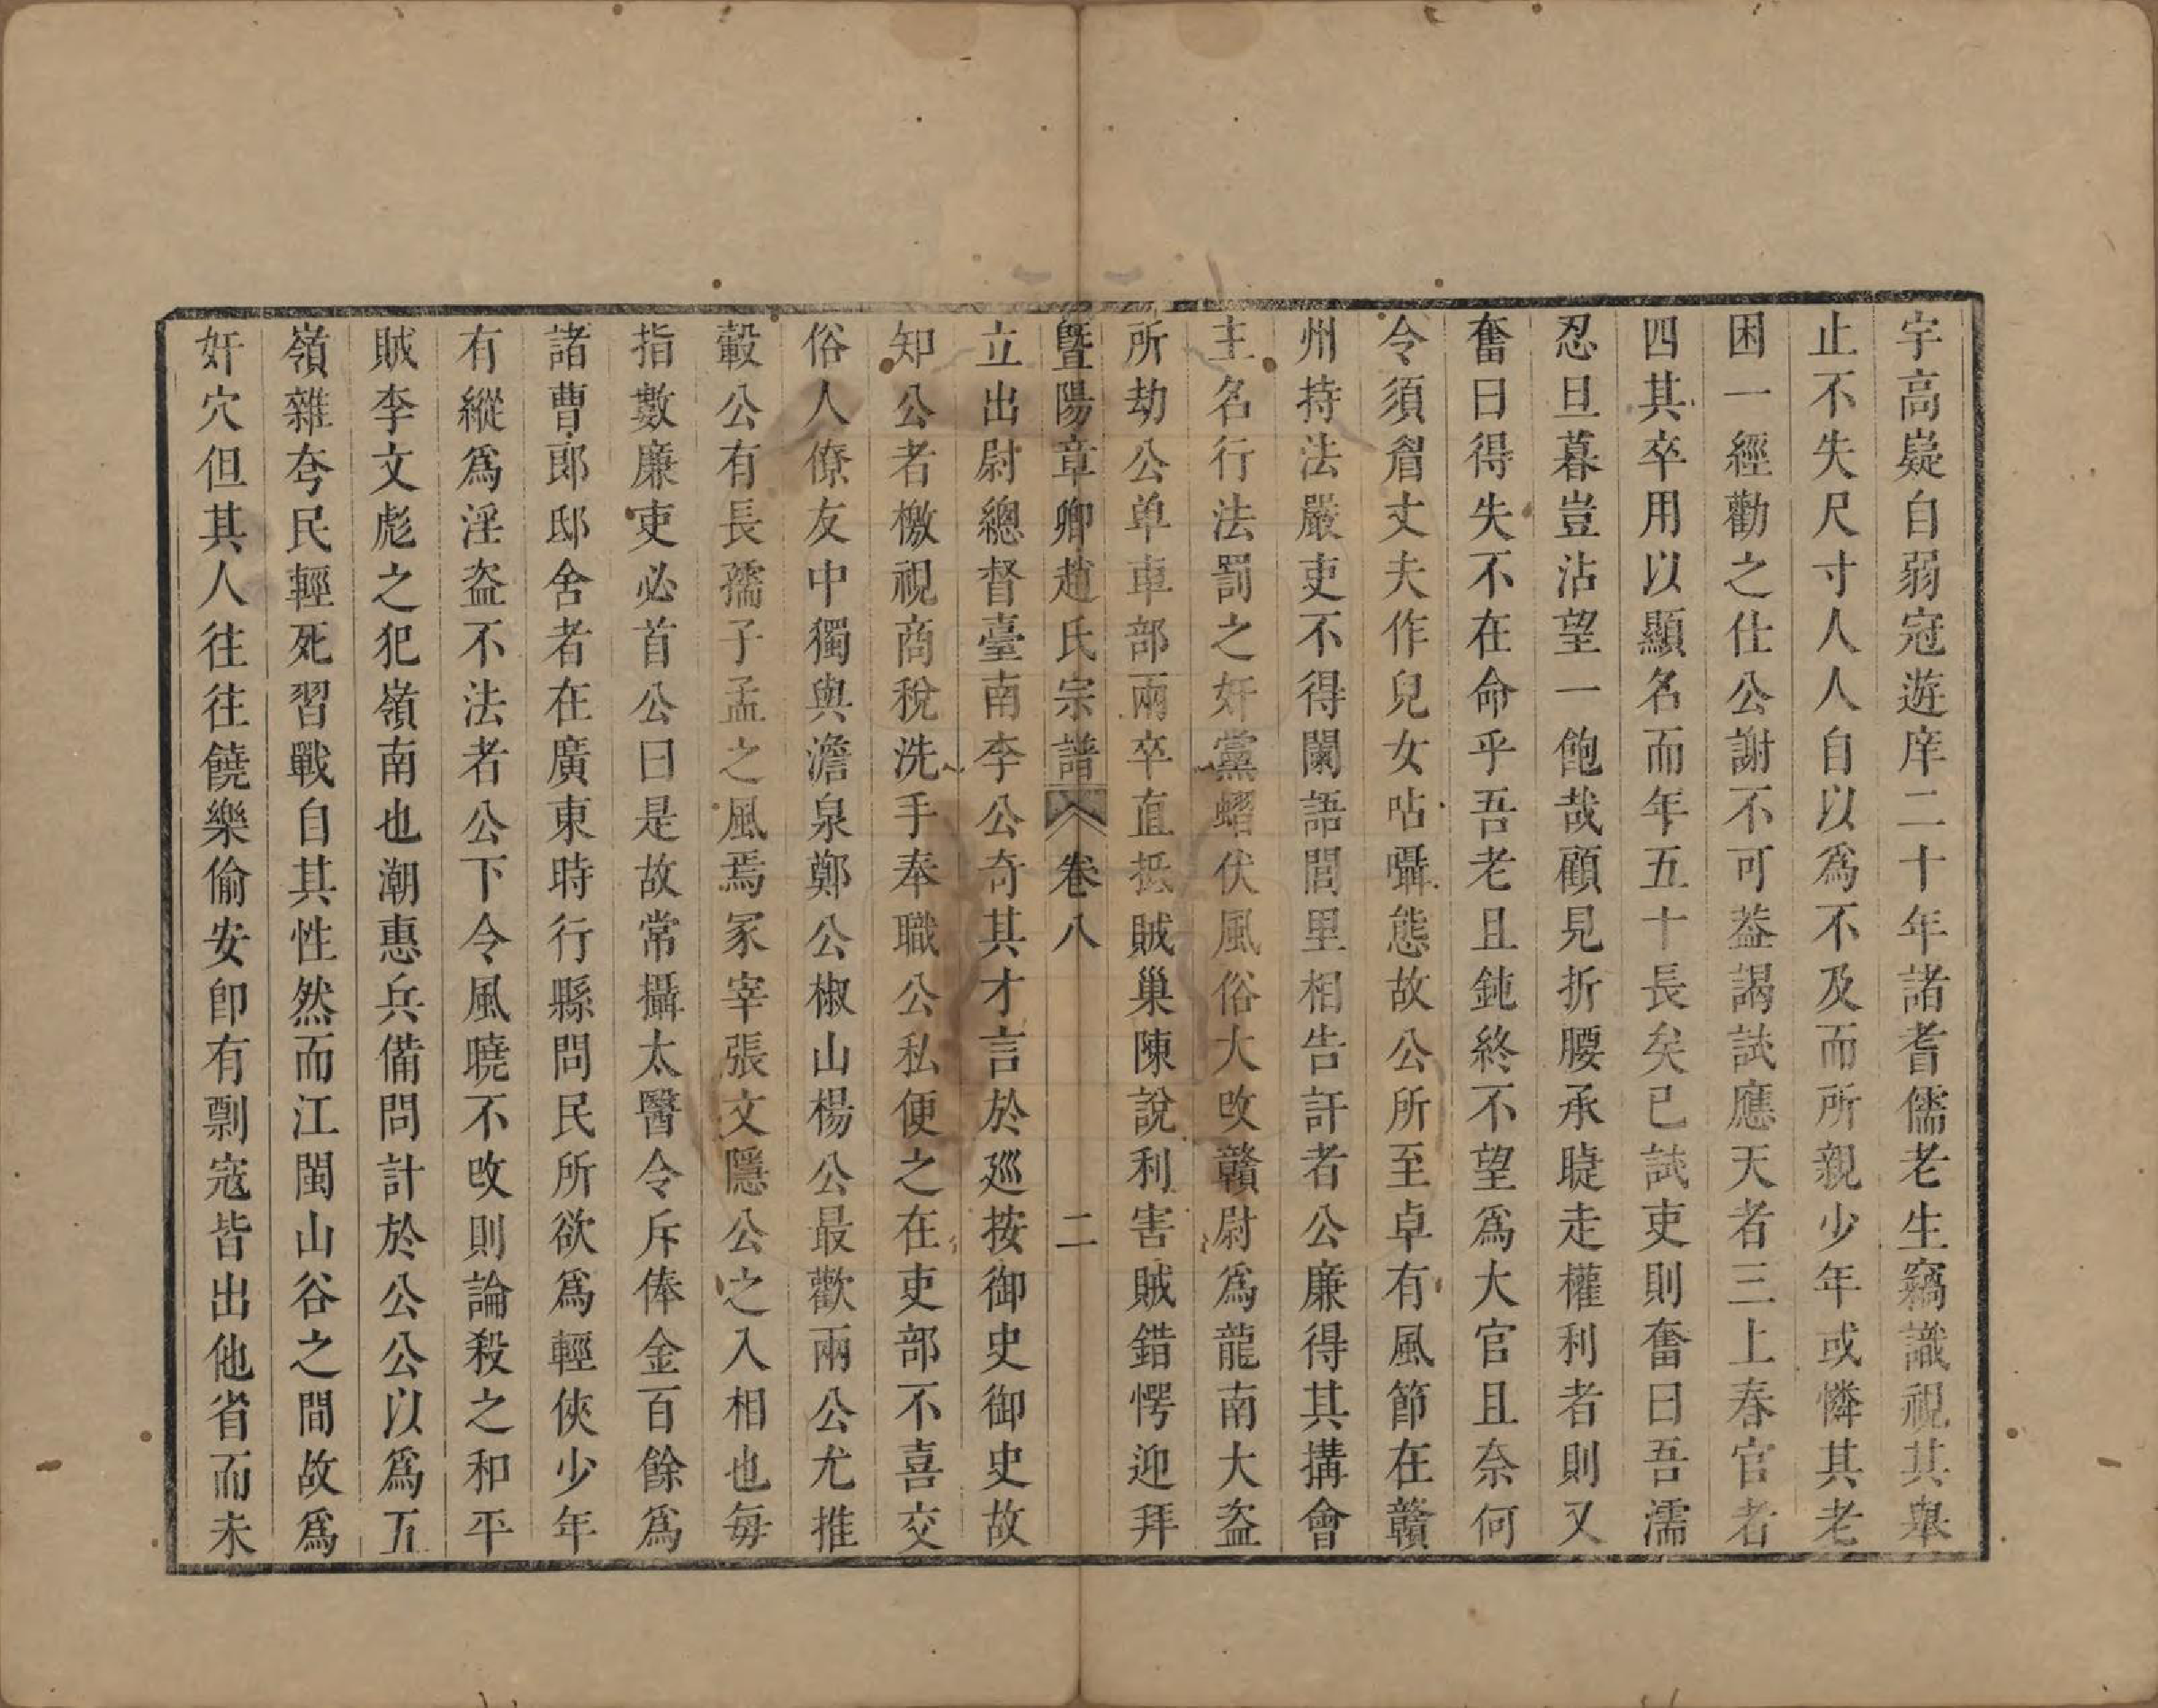 宇高嶷自弱冠遊庠二十年諸耆儒老生竊識視其舉
止不失尺寸人人自以爲不及而所親少年或憐其老
困一經勸之仕公謝不可葢謁試應天者三上春官者
四其卒用以顯名而年五十長矣已試吏則奮曰吾濡
忍旦暮豈沾望一飽哉顧見折腰承睫走權利者則又
奮曰得失不在命乎吾老且鈍終不望爲大官且奈何
令須眉丈夫作兒女呫囁態故公所至卓有風節在贛
州持法嚴吏不得闌語閭里相告訐者公廉得其搆會
主名行法罰之奸黨蟄伏風俗大改贛尉爲龍南大盗
所劫公单車部兩卒直抵賊巢陳說利害賊錯愕迎拜
暨陽章卿趙氏宗譜 卷八 二
立出尉總督臺南李公奇其才言於廵按御史御史故
知公者檄視商稅洗手奉職公私便之在吏部不喜交
俗人僚友中獨與澹泉鄭公椒山楊公最歡兩公尤推
轂公有長孺子孟之風焉冢宰張文隱公之入相也每
指數廉吏必首公曰是故常攝太醫令斥俸金百餘爲
諸曹郎邸舍者在廣東時行縣問民所欲爲輕俠少年
有縱爲淫盗不法者公下令風曉不改則論殺之和平
賊李文彪之犯嶺南也潮惠兵備問計於公公以爲五
嶺雜夸民輕死習戰自其性然而江閩山谷之間故爲
奸穴但其人往往饒樂偷安卽有剽寇皆出他省而未